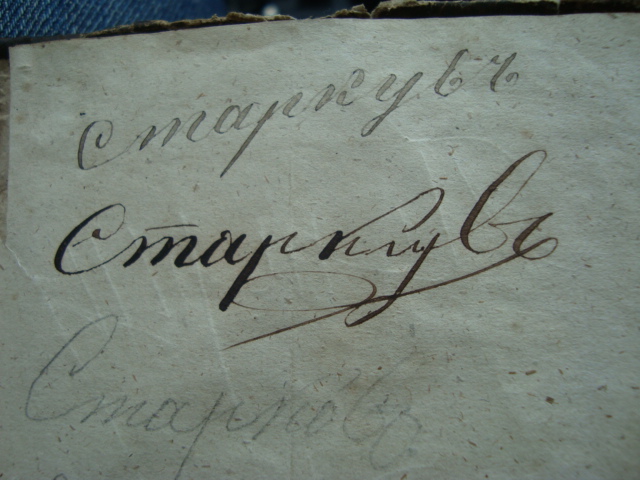 Старкувъ
Старкувъ
Старковъ